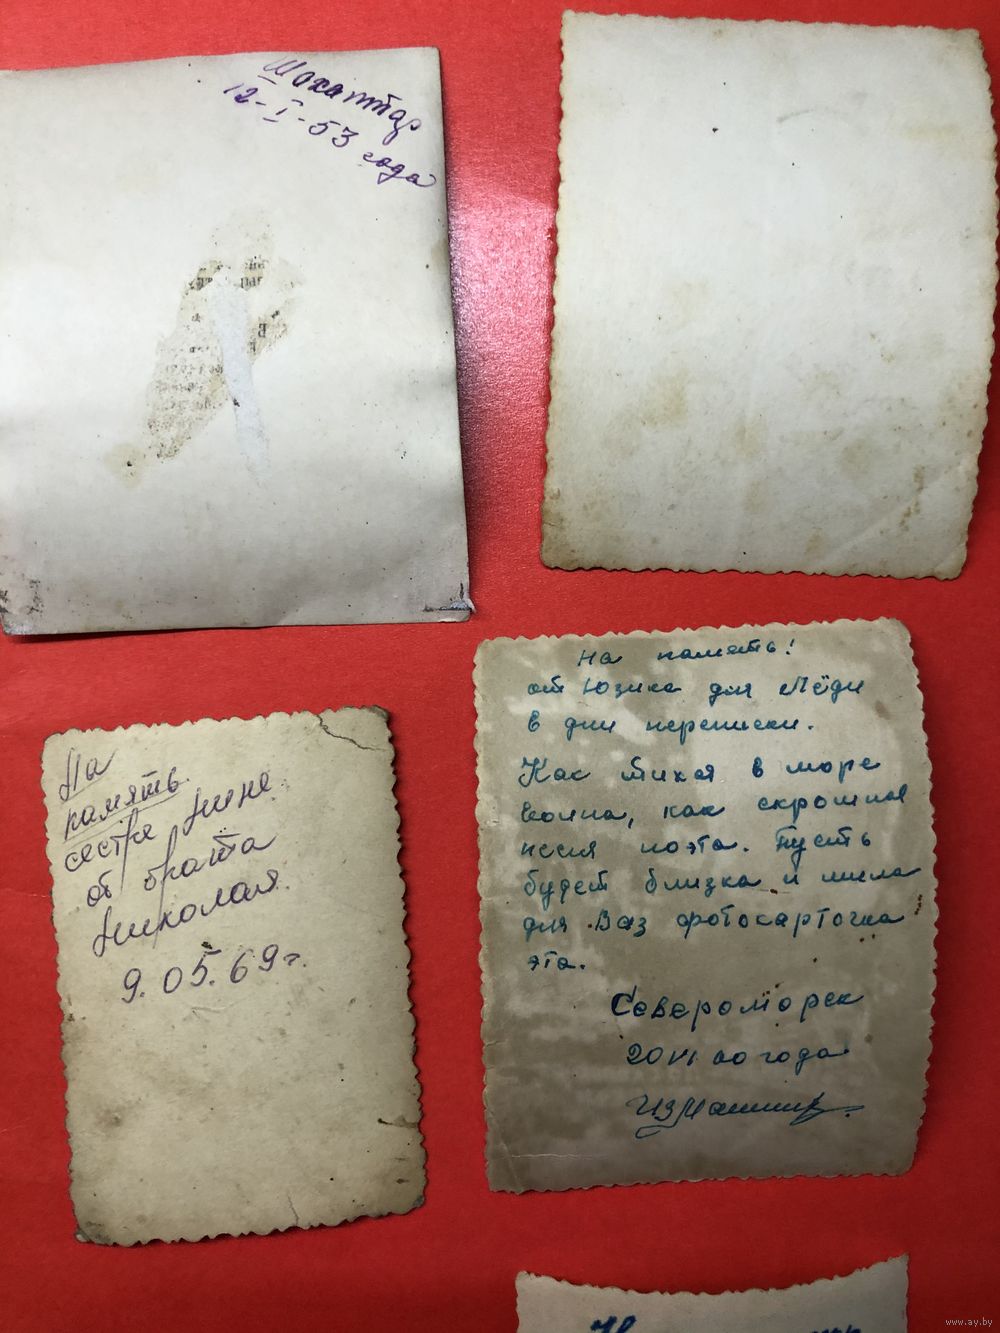 Шахаттар
12-I-53 года
На
память
сестре Нине
от брата
Николая.
9.05.69 г.
На память!
от Юзика для Лёди
в дни переписки.
Как тихая в море
волна, как скромная
песня поэта. Пусть
будет близка и мила
для Ваз фотокарточка
эта.
Североморск
20 VI 60 года
www.ay.by